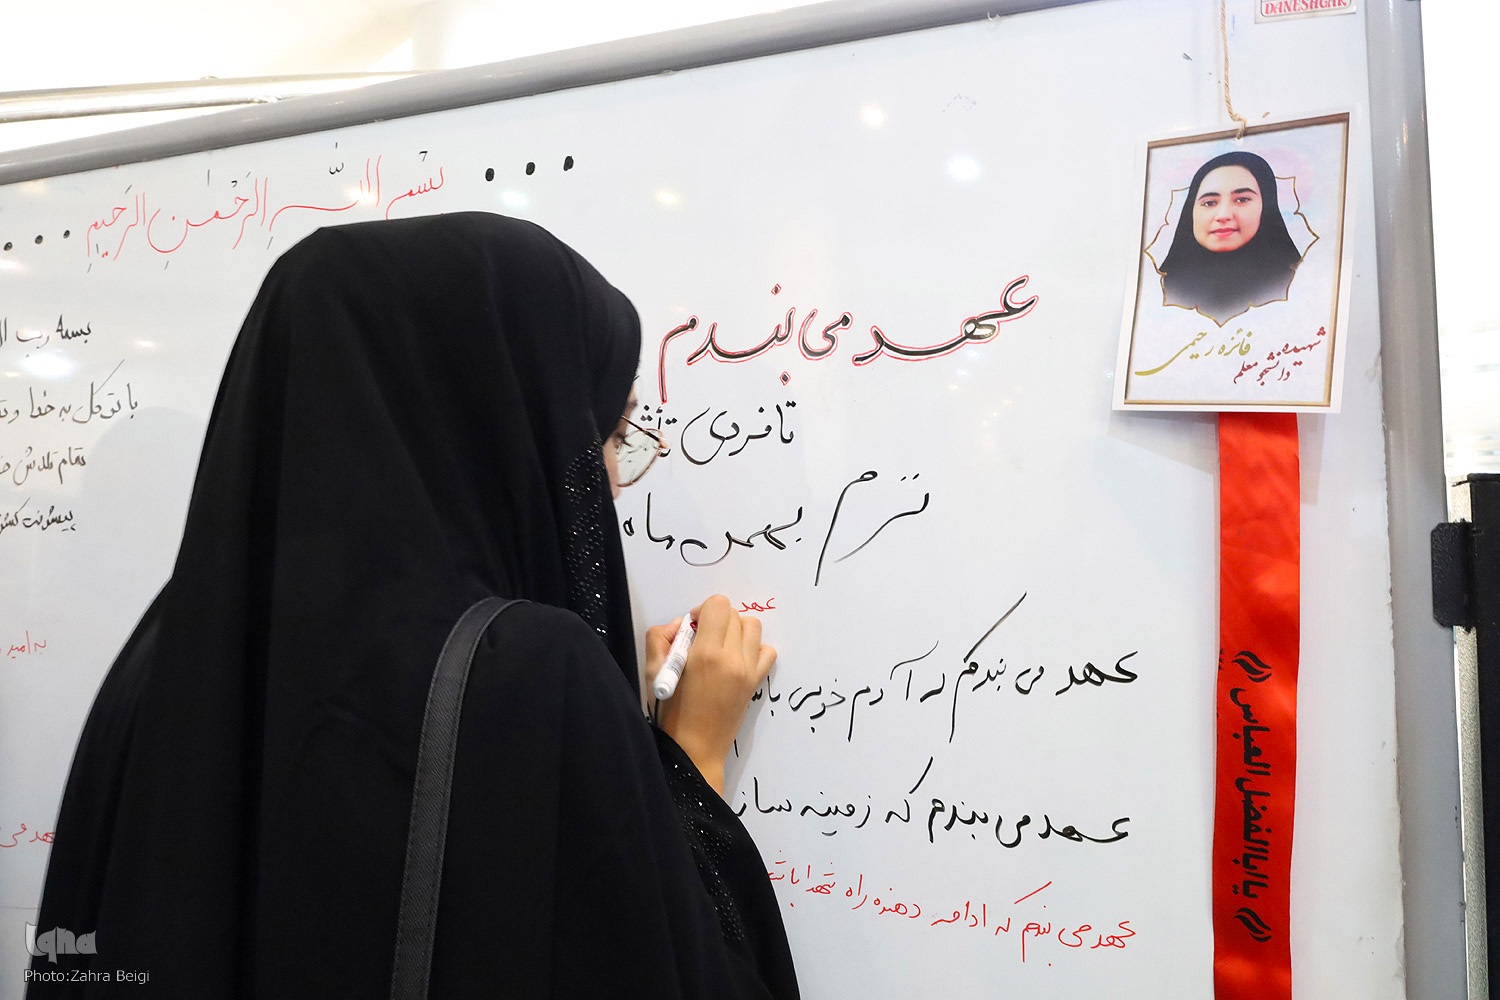 DANESHGAR
... بِسْمِ اللّٰهِ الرَّحْمٰنِ الرَّحیمِ ...
عهد می بندم
تا فردی
ترم بهمن ماه
عهد
عهد می بندم که آدم خوبی
عهد می بندم که زمینه ساز
عهد می بندم که ادامه دهنده راه شهدا
بسمه رب
با توکل به خدا
تمام تلاش
پیشرفت
به امید
عهد می
شهیده
دانشجو معلم
فائزه رحیمی
یا اباالفضل العباس
iqna
Photo:Zahra Beigi